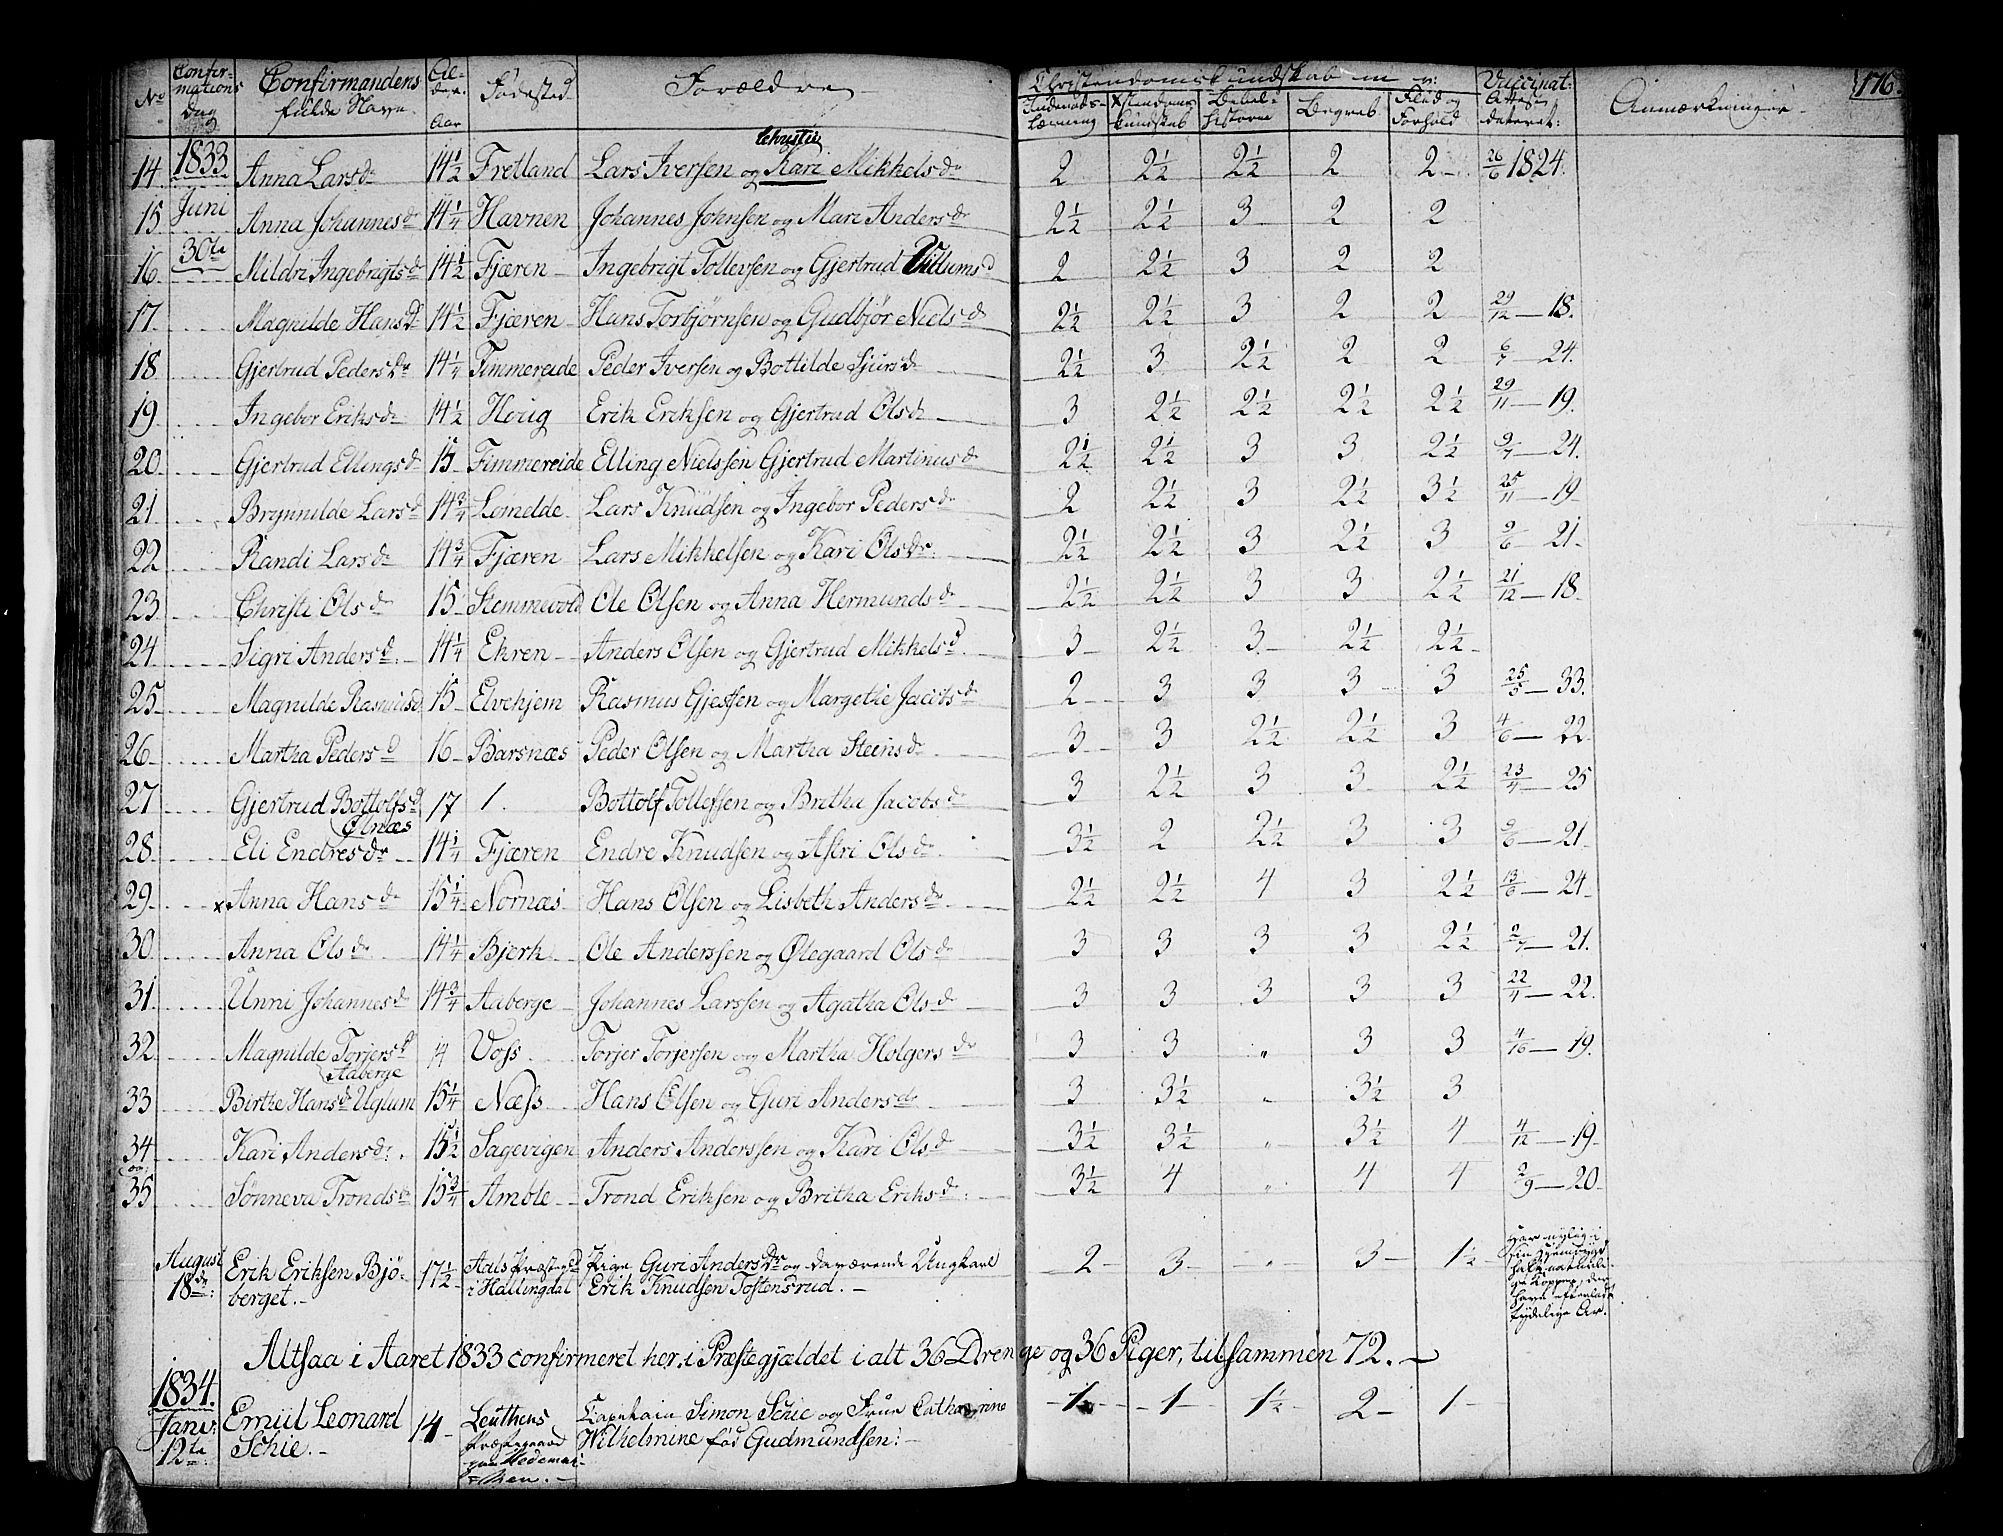 No Confirmations Dag Confirmandens fulde Navn. Alder. Aar Fødested Forældre Christendomskundskab m v: Indenads-læsning Xstendoms kundskab Bibel-historie Begreb Fliid og Forhold Vaccinat: Attest dateret: Anmærkninger 176.
Christie
14. 1833 Anna Larsdr 14½ Fretland Lars Iversen og Kari Mikkelsdr 2 2½ 2½ 2 2 26/6 1824.
15 Juni Anna Johannesdr 14¼ Havnen Johannes Johnsen og Mari Andersdr 2½ 2½ 3 2 2
16 30te Mildri Ingebrigtsdr 14½ Fjæren Ingebrigt Tollevsen og Gjertrud Villumsd 2 2½ 3 2 2
17 Magnilde Hansdr 14½ Fjæren Hans Torbjørnsen og Gudbjør Nielsdr 2½ 2½ 3 2 2 29/12 — 18.
18 Gjertrud Pedersdr 14¼ Fimmereide Peder Iversen og Bottilde Sjursdr 2½ 3 2½ 2 2 6/7 — 24.
19 Ingebor Eriksdr 14½ Houg Erik Eriksen og Gjertrud Olsdr 3 2½ 2½ 2½ 2½ 29/11 — 19.
20 Gjertrud Ellingsdr 15 Fimmereide Elling Nielssen Gjertrud Martinusdr 2½ 2½ 3 3 2½ 9/7 — 24.
21 Brynnilde Larsdr 14¾ Lomelde Lars Knudsen og Ingebor Pedersdr 2 2½ 3 2½ 3½ 25/11 — 19
22 Randi Larsdr 14¾ Fjæren Lars Mikkelsen og Kari Olsdr. 2½ 2½ 3 2½ 3 9/6 — 21
23 Christi Olsdr 15 Stemmevold Ole Olsen og Anna Hermundsdr 2½ 2½ 3 3 2½ 21/12 — 18
24 Sigri Andersd. 14¼ Ehren Anders Olsen og Gjertrud Mikkelsd. 3 2½ 3 2½ 2½
25 Magnilde Rasmusd 15 Elvehjem Rasmus Gjessen og Margethe Jacobsdr 2 3 3 3 3 25/5 — 33.
26 Martha Pedersd 16 Barsnæs Peder Olsen og Martha Steensdr 3 3 2½ 2½ 3 4/6 — 22
27 Gjertrud Bottolfsd 17 Bottolf Tollefsen og Britha Jacobsdr 3 2½ 3 3 2½ 23/4 — 25
Ølnæs
28 Eli Endresdr 14¼ Fjæren Endre Knudsen og Astri Olsdr. 3½ 2 2½ 3 3 9/6 — 21
29 x Anna Hansdr 15¼ Nornæs Hans Olsen og Lisbeth Andersdr 2½ 2½ 4 3 2½ 13/6 — 24
30 Anna Olsdr 14¼ Bjerk Ole Anderssen og Ølegaard Olsdr 3 3 3 3 2½ 2/7 — 21.
31 Unni Johannesdr 14¾ Aaberge Johannes Larssen og Agatha Olsdr 3 3 3 3 3 22/7 — 22.
32 Magnilde Torjersd 14 Voss Torjer Torjersen og Martha Holgersdr 3 3 „ 3 3 4/10 — 19.
Aaberge
33 Birthe Hansdr Uglum 15¼ Næss Hans Olsen og Guri Andersdr 3 3½ „ 3½ 3
34 Kari Andersdr. 15½ Sagevigen Anders Anderssen og Kari Olsdr 3½ 3½ „ 3½ 4 4/12 — 19
og
35 Sønneva Trondsdr 15¾ Amble Trond Eriksen og Britha Eriksdr. 3½ 4 „ 4 4 2/9 — 20
August 18de: Erik Eriksen Bjø- 17½ Aals Præstegd Pige Guri Andersdr og daværende Ungkarl 2 3 „ 3 1½ Har nylig i
berget. i Hallingdal Erik Knudsen Tostensrud. sin Hjembygd
havt naturli-
ge Kopper, der
have efterladt
tydelige Ar.
Altsaa i Aaret 1833 confirmeret her i Præstegjældet i alt 36 Drenge og 36 Piger, tilsammen 72.
1834. Emiil Leonard 14 Leuthens Capitain Simon Schie og Frue Catharine 1 1 1½ 2 1
Janu: Schie. Præstegaard Wilhelmine fød Gudmundsen.
12te paa Hedemar-
ken.